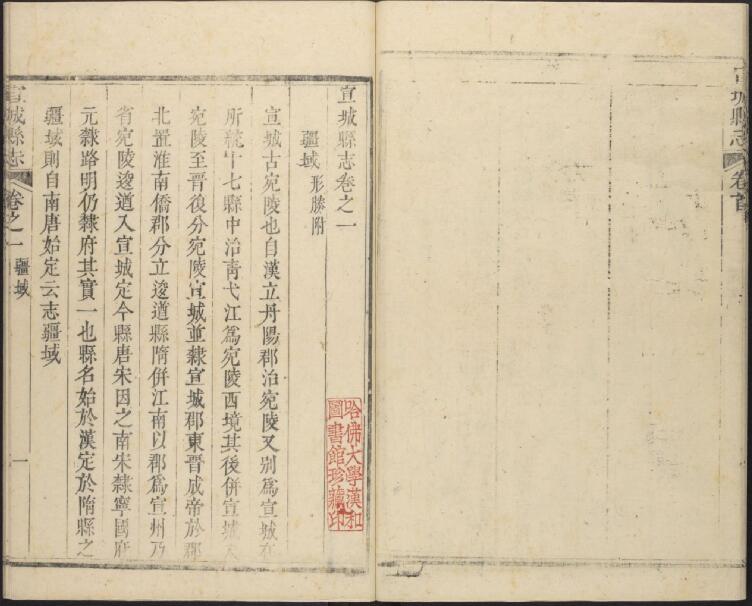 宣城縣志
卷首
宣城縣志卷之一
疆域 形勝附
宣城古宛陵也自漢立丹陽郡治宛陵又别爲宣城在
所統十七縣中治靑弋江爲宛陵西境其後併宣城入
宛陵至晉後分宛陵宣城並隸宣城郡東晉成帝於郡
北置淮南僑郡分立逡道縣隋併江南以郡爲宣州乃
省宛陵逡道入宣城定今縣唐宋因之南宋隸寧國府
元隸路明仍隸府其實一也縣名始於漢定於隋縣之
疆域則自南唐始定云志疆域
宣城縣志
卷之一
疆域
一
哈佛大學漢和
圖書館珍藏印